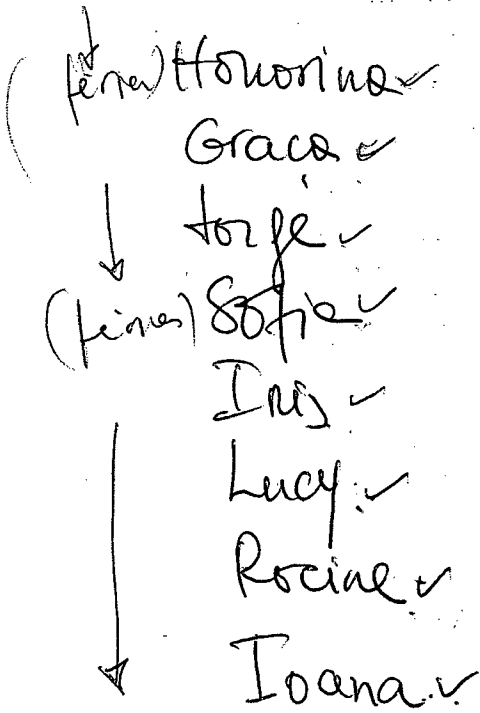 (férias) Honorina ✓
Graça ✓
Jorge ✓
(férias) Sofia ✓
Iris ✓
Lucy ✓
Rocine ✓
Ioana ✓